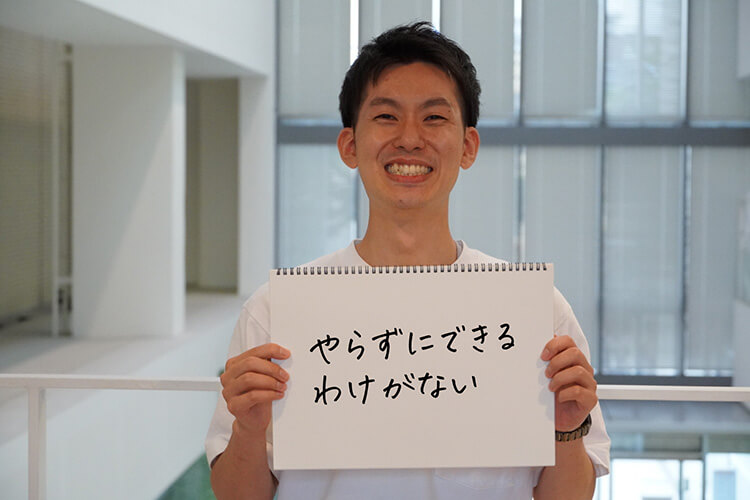 やらずにできる
わけがない